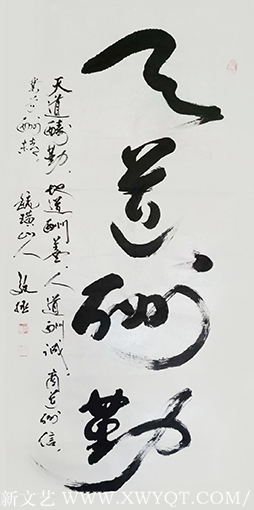 天道酬勤
天道酬勤、地道酬善、人道酬诚、商道酬信、
業道酬精。
山人
新文艺 / WWW.XWYQT.COM/